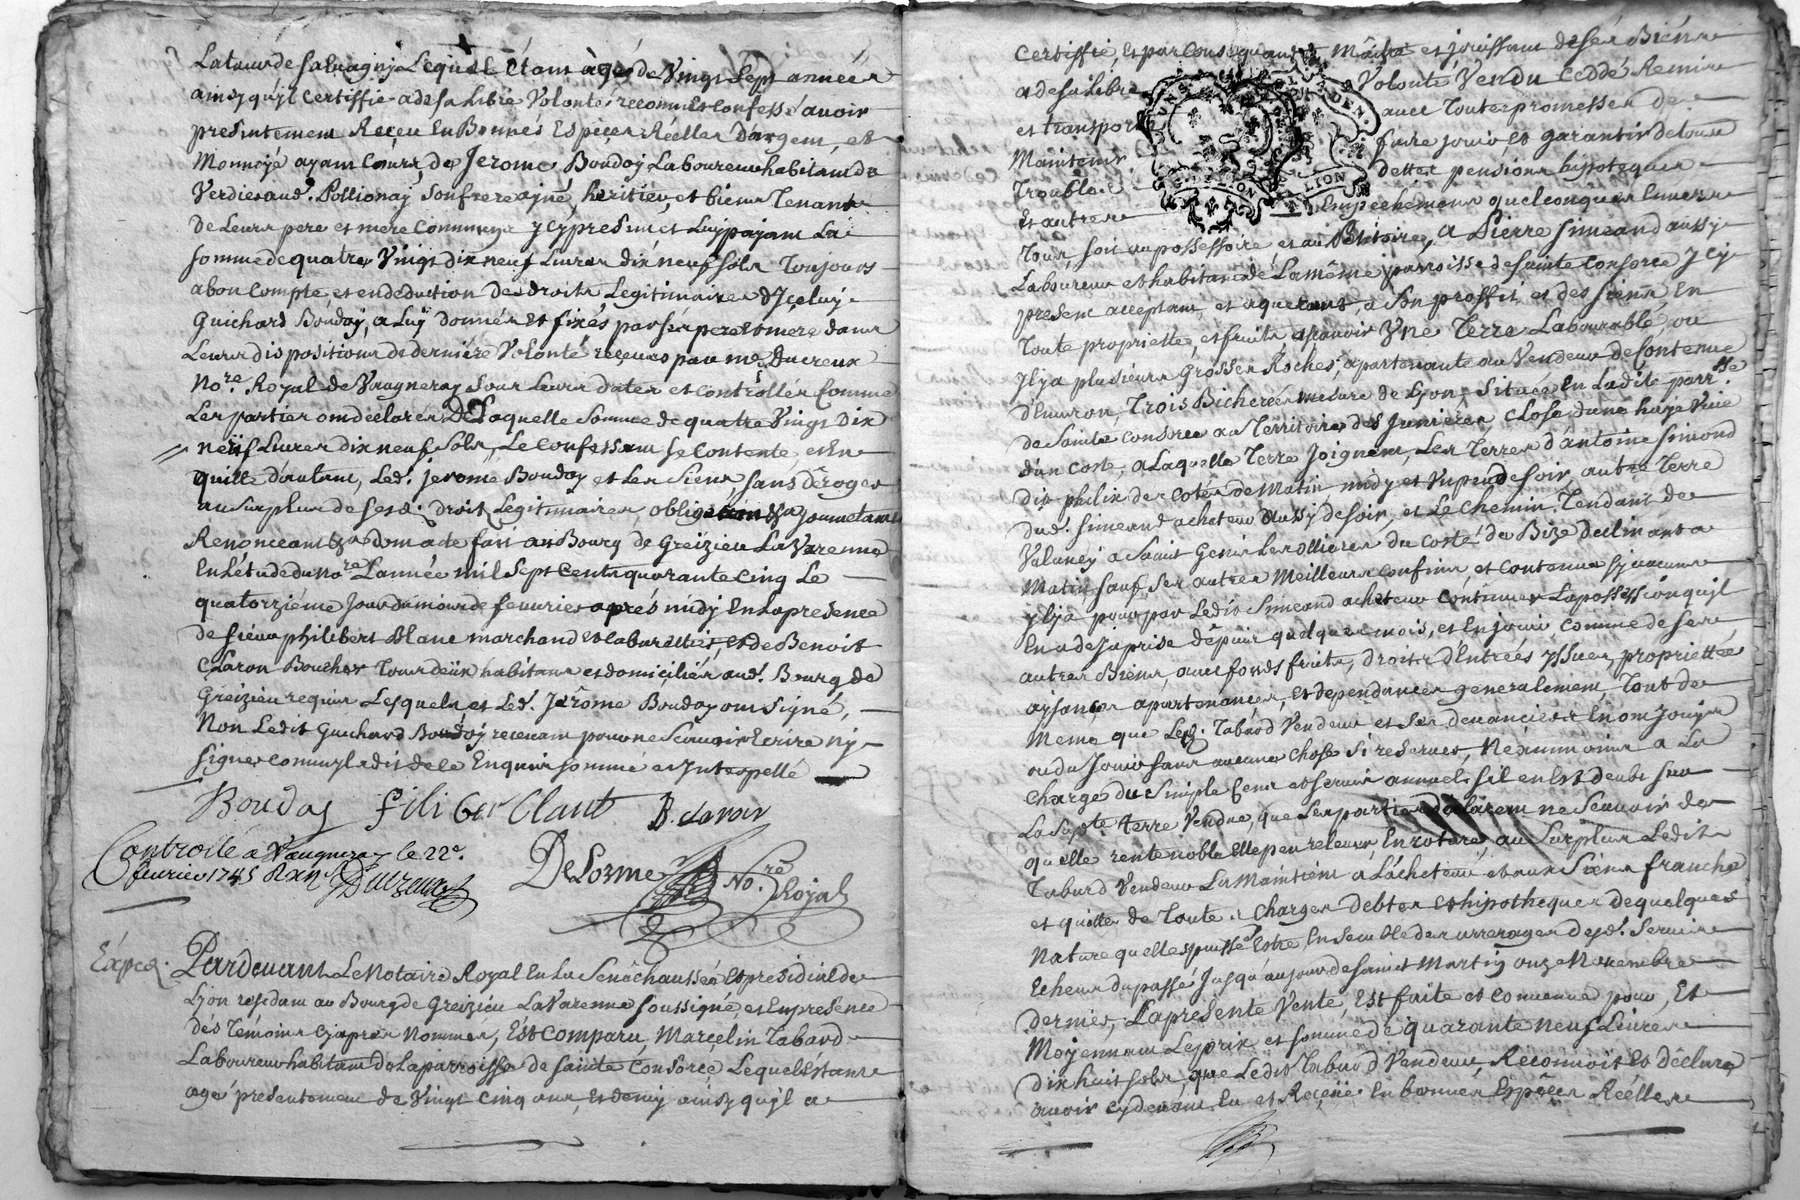 Latour de Salvagny Lequel Étant àgé de Vingt Sept années
ainsy qu'jl Certiffie a de sa Libre Volonté reconnu et Confessé avoir
presentement Reçeu En Bonnes Espeçes Réelles D'argent, et
Monnoyé ayant Cours, de Jerome Boudoy Laboureur habitant de
Verdier aud. Pollionay son frere ajné, heritier, et biens Tenant
De Leurs pere et mere Communs ycy present et Luy payant La
somme de quatre Vingt dix neuf Livres dix neuf sols Toujours
a bon Compte et en deduction Des droits Legitimaires D'Jçeluy
Guichard Boudoy, a Luy donnés et fixés par ses pere et mere dans
Leurs dispositions de derniére Volonté receues par me Ducreux
Nore. Royal de Vaugneray sous Leurs dates et Controllés Comme
Les parties ont déclaré, De Laquelle Somme de quatre Vingt Dix
neuf Livres dix neuf sols, Le Confessant se Contente, et En
quitte d'autant, Led. jerome Boudoy et Les Siens sans déroger
au surplus de sesd. droits Legitimaires, obligeant &a soumetant
Renonceant &a dont acte fait au Bourg de Greizieu La Varenne
En L'étude du Nore L'année mil Sept Cents quarante Cinq Le
quatorziéme Jour du mois de fevrier aprés midy En La presence
de sieur philibert Blanc marchand et Cabarettier, et de Benoit
Claron Boucher Tous deux habitans et domiciliés aud. Bourg de
Greizieu requis Lesquels et Led. Jerôme Boudoy ont signé,
Non Ledit Guichard Boudoy recevant pour ne Scavoir Ecrire ny
signer Comme jl a dit de ce Enquis sommé et Jnterpellé
Boudoy filiber Clant B. claron
Controllé a Vaugneray le 22e.
fevrier 1745 Ducreux
DeLorme Nore. Royal
Expéd. Pardevant Le Notaire Royal En La Senéchaussée et presidial de
Lyon residant au Bourg de Greizieu La Varenne soussigné, et En presence
dés Témoins Cy aprés Nommés, Est Comparu Marçelin Tabard
Laboureur habitant de La parroisse de sainte Consorçe Lequel Éstant
agé présentement de Vingt Cinq ans, et demy ainsy qu'jl a
Certiffié, et par Conséquant Maitre et jouissant de sés Biéns
a de sa Libre Volonté Vendu Ceddé Remis
et transporté avec Toutes promesses de
Maintenir faire jouir et garantir de tous
Troubles dettes pensions hipoteques
Et autres Empechemens quelconques Envers
Tous, soit au possessoire et au Petitoire, A Pierre Simeand aussy
Laboureur et habitant de La même parroisse de sainte Consorce Jcy
présent acceptant et aquerant, a son proffit et des siens En
Toute proprietté, et fruits asçavoir Vne Terre Labourable, ou
Jl y a plusieurs Grosses Roches, apartenante au Vendeur de Contenue
D'Environ, Trois Bicherées mesure de Lyon, Située En Ladite parrsse
de Sainte Consorce au Territoire des Junieres, Close d'une haye Vive
d'un Coste, a Laquelle Terre Joignent, Les Terres d'antoine Simond
dit philix des Cotés de Matin midy et Vn peu de soir, autre Terre
dud. Simeand acheteur Aussy de soir, et Le Chemin Tendant de
Valancy a Saint Genis Les Ollieres du Costé de Bize declinant a
Matin sauf ses autres Meilleurs Confins et Contenue sy aucuns
y Il y a pour par Ledit Simeand acheteur Continuer La possession qu'jl
En a desja prise depuis quelques mois, et En jouir Comme de ses
autres Biens, avec fonds fruits, droits d'Entrées yssues, propriettés
aysançes apartenances, Et dépendances generalement Tout de
Meme que Led. Tabard Vendeur et Ses devanciers En ont Jouy
ou du Jouir sans aucune Chose Si reserver, Néanmoins a La
Charge du Simple Cens et Servis annuel s'il en Est deubt sur
La suste. terre Vendue, que Les parties declarent ne Scavoir de
quelle rente noble Elle peut relever En roture, au Surplus Ledit
Tabard Vendeur La Maintient a L'acheteur et aux Siens franche
et quitte de Toute Charges Debtes et hipotheques de quelques
Nature quelles puisse Estre, En semble des arrerages dejd. Servis
Echeus du passé Jusqu'au jour de saint Martin onze Novembre
dernier, La présente Vente, Est faite et Convenue pour, Et
Moyennant Le prix et somme de quarante neuf Livres
dix huit sols, que Ledit Tabard Vendeur, Reconnoit et Déclare
avoir cy devant Eu et Reçeüe En bonnes Espêces Réelles